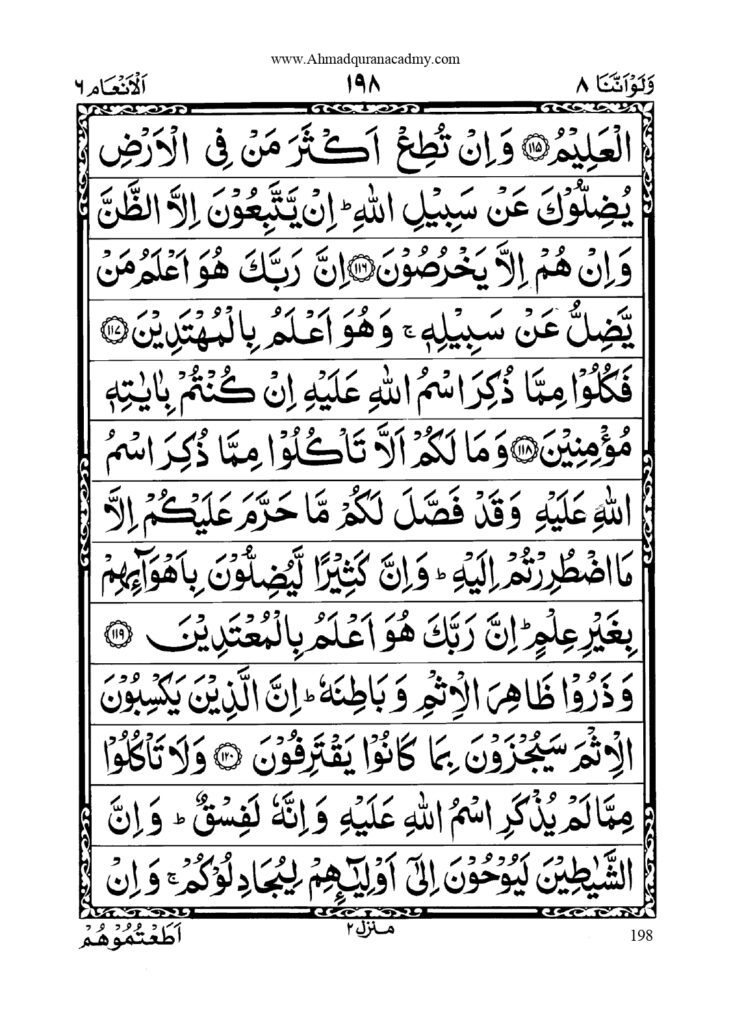 www.Ahmadquranacadmy.com
وَلَوْ اَنَّنَا ۸ ۱۹۸ اَلْاَنْعَام ۶
الْعَلِيْمُ ۝۱۱۵ وَ اِنْ تُطِعْ اَكْثَرَ مَنْ فِى الْاَرْضِ
يُضِلُّوْكَ عَنْ سَبِيْلِ اللهِ ؕ اِنْ يَّتَّبِعُوْنَ اِلَّا الظَّنَّ
وَ اِنْ هُمْ اِلَّا يَخْرُصُوْنَ ۝۱۱۶ اِنَّ رَبَّكَ هُوَ اَعْلَمُ مَنْ
يَّضِلُّ عَنْ سَبِيْلِهٖ ۚ وَهُوَ اَعْلَمُ بِالْمُهْتَدِيْنَ ۝۱۱۷
فَكُلُوْا مِمَّا ذُكِرَ اسْمُ اللهِ عَلَيْهِ اِنْ كُنْتُمْ بِاٰيٰتِهٖ
مُؤْمِنِيْنَ ۝۱۱۸ وَ مَا لَكُمْ اَلَّا تَاْكُلُوْا مِمَّا ذُكِرَ اسْمُ
اللهِ عَلَيْهِ وَ قَدْ فَصَّلَ لَكُمْ مَّا حَرَّمَ عَلَيْكُمْ اِلَّا
مَا اضْطُرِرْتُمْ اِلَيْهِ ؕ وَ اِنَّ كَثِيْرًا لَّيُضِلُّوْنَ بِاَهْوَآئِهِمْ
بِغَيْرِ عِلْمٍ ؕ اِنَّ رَبَّكَ هُوَ اَعْلَمُ بِالْمُعْتَدِيْنَ ۝۱۱۹
وَ ذَرُوْا ظَاهِرَ الْاِثْمِ وَ بَاطِنَهٗ ؕ اِنَّ الَّذِيْنَ يَكْسِبُوْنَ
الْاِثْمَ سَيُجْزَوْنَ بِمَا كَانُوْا يَقْتَرِفُوْنَ ۝۱۲۰ وَ لَا تَاْكُلُوْا
مِمَّا لَمْ يُذْكَرِ اسْمُ اللهِ عَلَيْهِ وَ اِنَّهٗ لَفِسْقٌ ؕ وَ اِنَّ
الشَّيٰطِيْنَ لَيُوْحُوْنَ اِلٰٓى اَوْلِيٰٓـِٕهِمْ لِيُجَادِلُوْكُمْ ۚ وَ اِنْ
اَطَعْتُمُوْهُمْ
منزل ۲
198